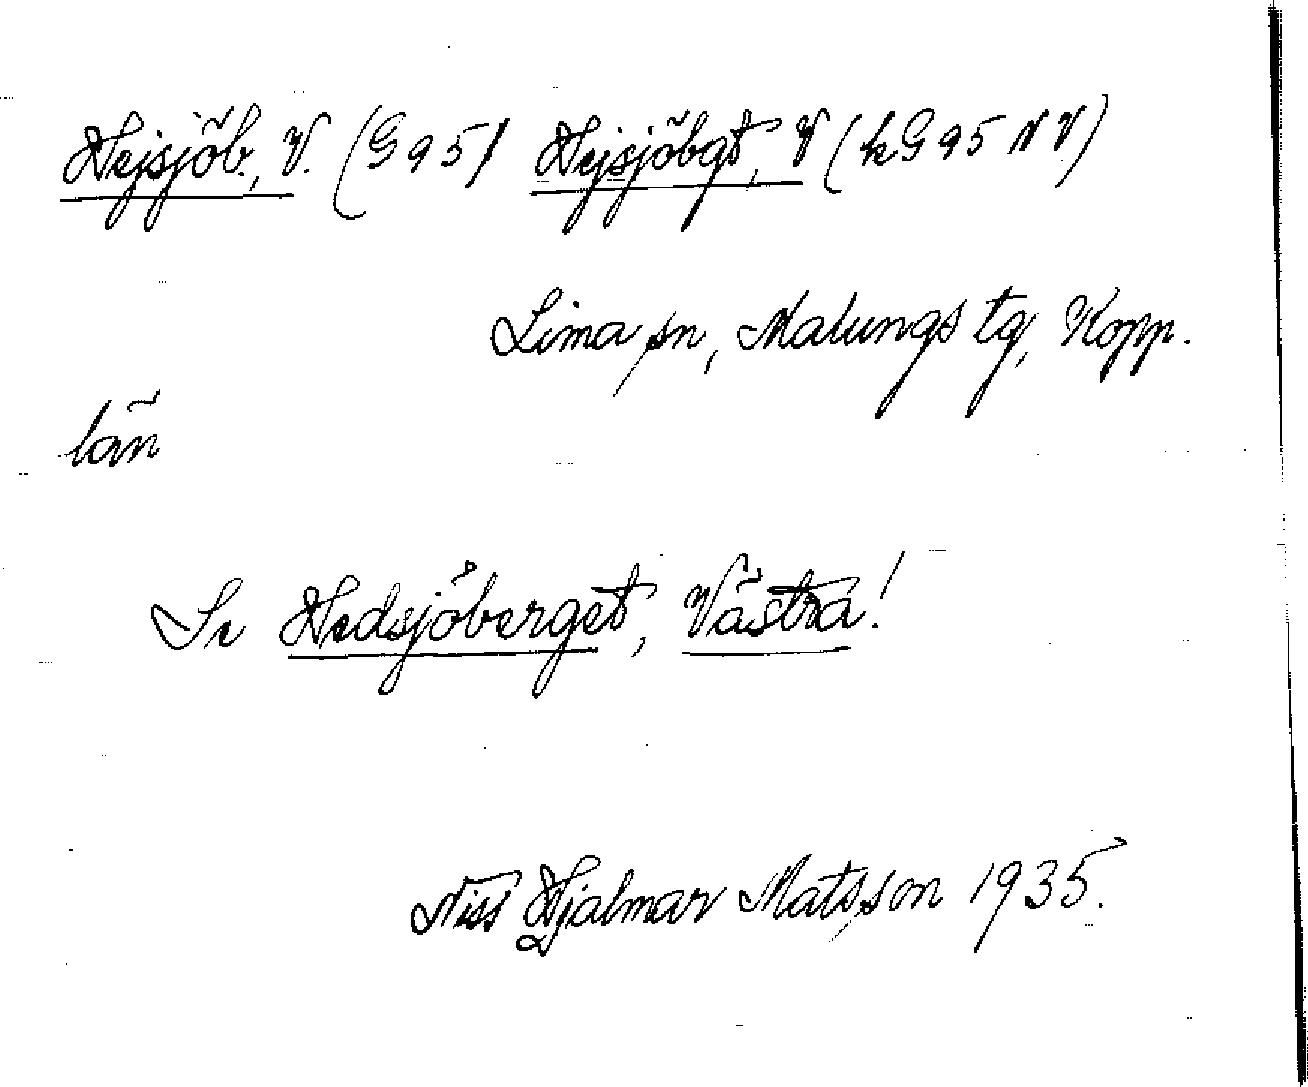 Hejsjöb., V. (G95) Hejsjöbgt, V (kG95NV)
Lima sn, Malungs tg, Kopp.
län
Se Hedsjöberget, Västra!
Niss Hjalmar Matsson 1935.